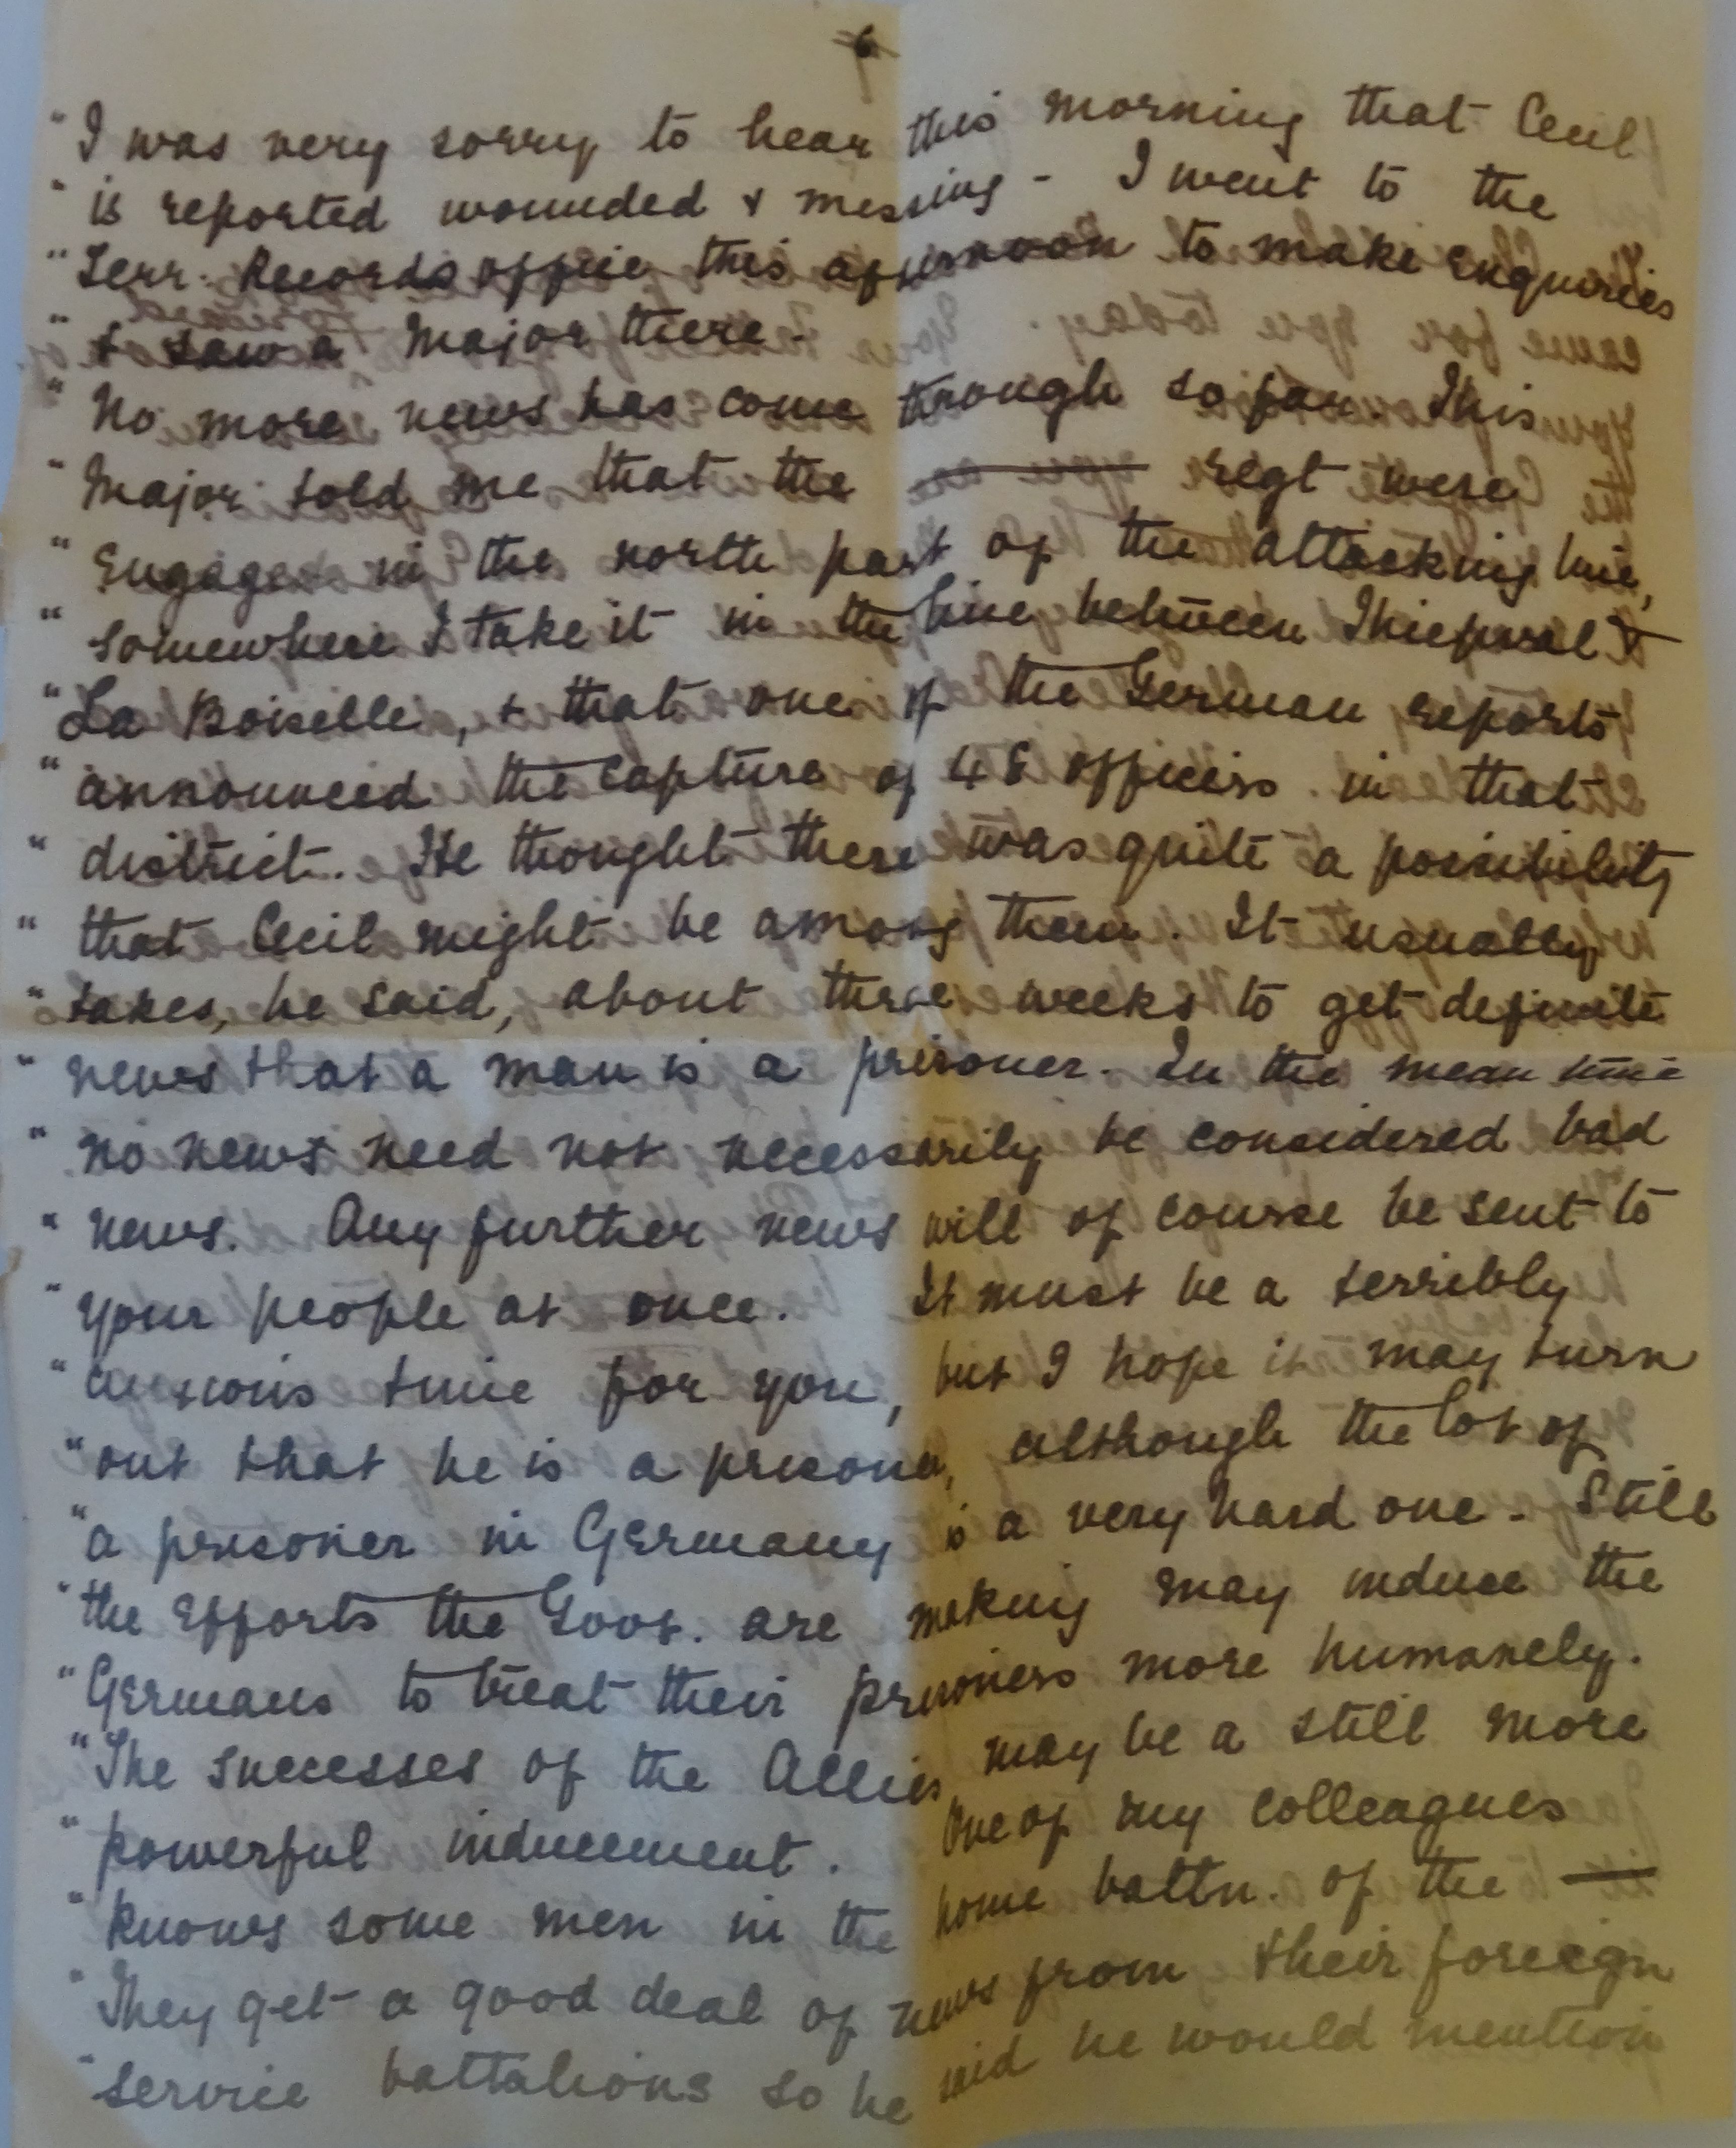 6
"I was very sorry to hear this morning that Cecil
"is reported wounded & missing - I went to the
"Terr. Records office this afternoon to make enquiries
"& saw a Major there -
"No more news has come through so far. This
"Major told me that the —— regt were
"engaged in the north part of the attacking line,
"somewhere I take it in the line between Thiepval &
"La Boiselle, & that one of the German reports
"announced the capture of 48 officers in that
"district. He thought there was quite a possibility
"that Cecil might be among them. It usually
"takes, he said, about three weeks to get definite
"news that a man is a prisoner. In the mean time
"no news need not necessarily be considered bad
"news. Any further news will of course be sent to
"your people at once. It must be a terribly
"anxious time for you, but I hope it may turn
"out that he is a prisoner, although the lot of
"a prisoner in Germany is a very hard one - Still
"the efforts the Govt. are making may induce the
"Germans to treat their prisoners more humanely.
"The successes of the Allies may be a still more
"powerful inducement. One of my colleagues
"knows some men in the home battn. of the —
"They get a good deal of news from their foreign
"service battalions so he said he would mention